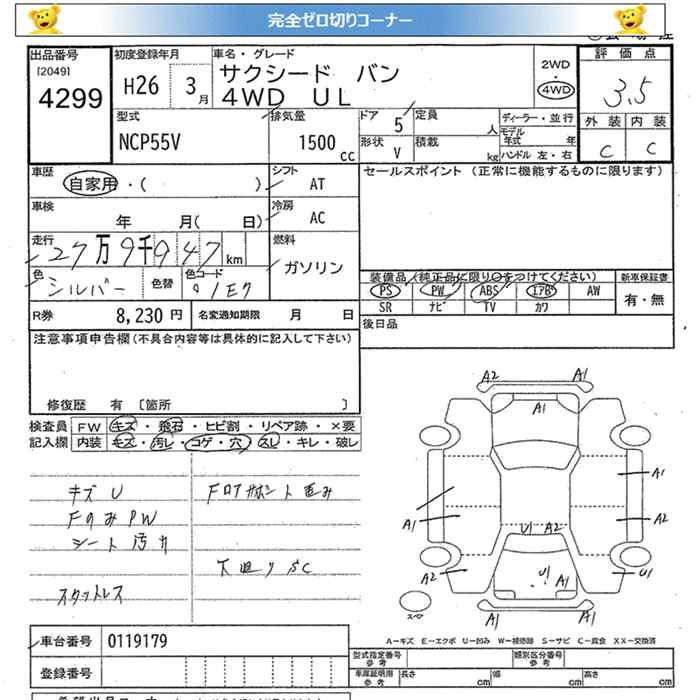 完全ゼロ切りコーナー
出品番号 初度登録年月 車名・グレード 評価点
[2049] サクシード バン 2WD
4299 H26 3月 4WD UL 4WD 3.5
型式 排気量 ドア 定員 ディーラー・並行 外装 内装
NCP55V 1500cc 5 人 モデル年式 年 C C
形状 V 積載 kg ハンドル 左・右
車歴 自家用・( ) シフト AT セールスポイント (正常に機能するものに限ります)
車検 年 月( 日) 冷房 AC
走行 27万9千947km 燃料 ガソリン
色 シルバー 色替 色コード 装備品(純正品に限り○をつけてください) 新車保証書
PS PW ABS エアB AW 有・無
SR ナビ TV カワ
R券 8,230円 名変通知期限 月 日 後日品
注意事項申告欄(不具合内容等は具体的に記入して下さい)
修復歴 有 〔箇所 〕
検査員 FW キズ・飛石・ヒビ割・リペア跡・×要
記入欄 内装 キズ・汚レ・コゲ・穴・スレ・キレ・破レ
キズ U
FのみPW
シート汚れ
スタットレス
下廻りSC
A2 A1
A1
A1
A1 A2
U1 A2
A2 U1 A1 U1
A1 A1
スペア
A-キズ E-エクボ U-凹み W-補修跡 S-サビ C-腐食 XX-交換済
車台番号 0119179 型式指定番号 参考 類別区分番号 参考
登録番号 車庫証明用 参考 長さ cm 幅 cm 高さ cm